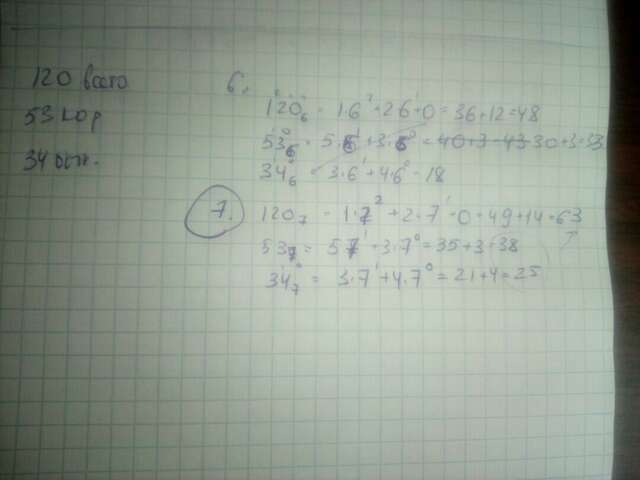 120 всего
53 кор
34 бык.
6.
120₆ = 1·6² + 2·6¹ + 0 = 36 + 12 = 48
53₆ = 5·6¹ + 3·6⁰ = 40 + 3 = 43 30 + 3 = 33
34₆ = 3·6¹ + 4·6⁰ = 18
7.
120₇ = 1·7² + 2·7¹ + 0 = 49 + 14 = 63
53₇ = 5·7¹ + 3·7⁰ = 35 + 3 = 38
34₇ = 3·7¹ + 4·7⁰ = 21 + 4 = 25